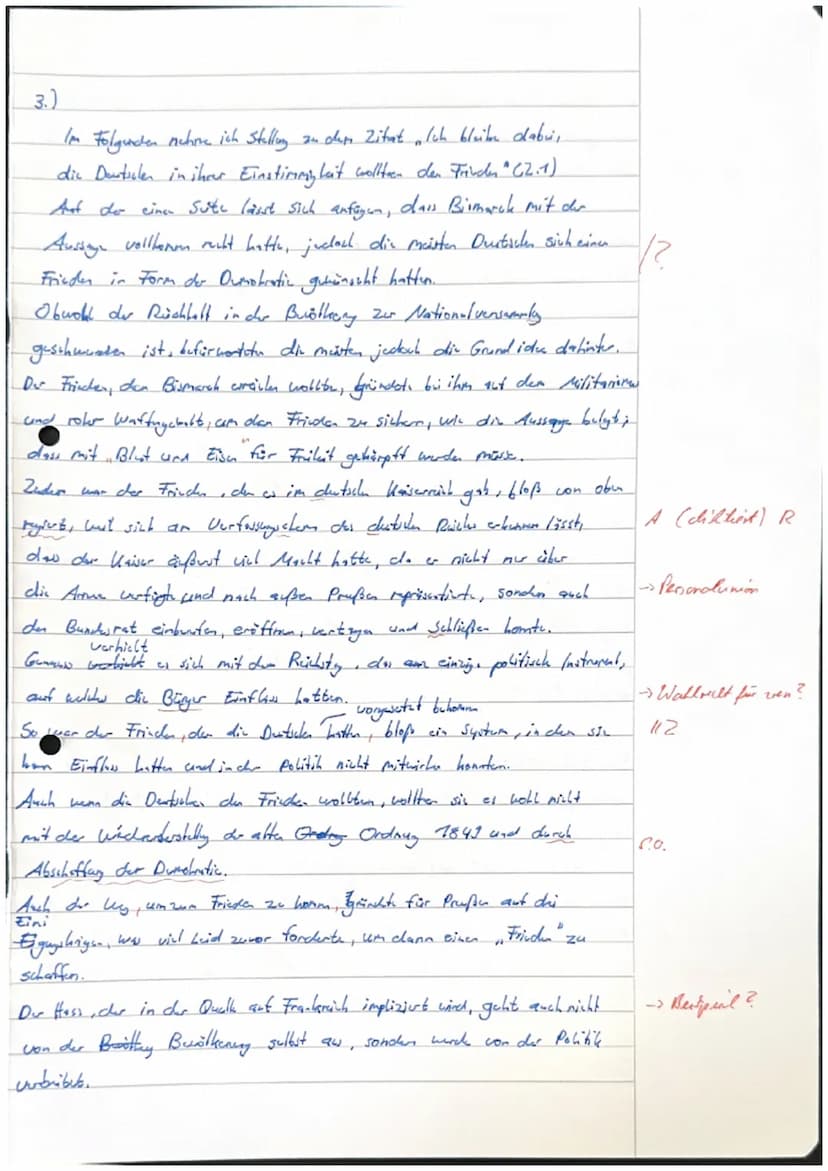 3.)
Im Folgenden nehme ich Stellung zu dem Zitat „Ich bleibe dabei,
die Deutschen in ihrer Einstimmigkeit wollten den Frieden" (Z.1)
Auf der einen Seite lässt sich anfügen, dass Bismarck mit der
Aussage vollkommen recht hatte, jedoch die meisten Deutschen sich einen
/?
Frieden in Form der Demokratie gewünscht hatten.
Obwohl der Rückhalt in der Bevölkerung zur Nationalversammlg
geschwunden ist, befürworteten die meisten jedoch die Grundidee dahinter.
Der Frieden, den Bismarck erreichen wollte, gründete bei ihm auf dem Militarismus
und roher Waffengewalt, um den Frieden zu sichern, wie die Aussage belegt,
dass mit „Blut und Eisen" für Freiheit gekämpft werden müsse.
Zudem war der Frieden, den es im deutschen Kaiserreich gab, bloß von oben
regiert, was sich am Verfassungsschema des deutschen Reichs erkennen lässt,
A (diktiert) R
dass der Kaiser äußerst viel Macht hatte, da er nicht nur über
die Armee verfügte und nach außen Preußen repräsentierte, sondern auch
→ Personalunion
den Bundesrat einberufen, eröffnen, vertagen und schließen konnte.
Genauso verhielt es sich mit dem Reichstag, das einzige politische Instrument,
auf welches die Bürger Einfluss hatten.
→ Wahlrecht für wen?
So war der Frieden, den die Deutschen vorgesetzt bekommen hatten, bloß ein System, in dem sie
11 Z
kaum Einfluss hatten und in der Politik nicht mitwirken konnten.
Auch wenn die Deutschen den Frieden wollten, wollten sie es wohl nicht
mit der Wiederherstellg der alten Ordnung 1849 und durch
s.o.
Abschaffung der Demokratie.
Auch der Weg, um zum Frieden zu kommen, gründete für Preußen auf die
Einigungskriegen, was viel Leid zuvor forderte, um dann einen „Frieden" zu
schaffen.
Der Hass, der in der Quelle auf Frankreich impliziert wird, geht auch nicht
→ Beispiel?
von der Bevölkerung selbst aus, sondern wurde von der Politik
verbreitet.